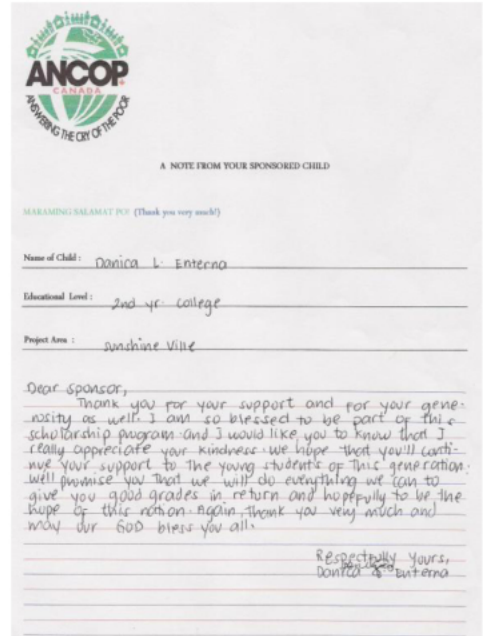 ANCOP
CANADA
ANSWERING THE CRY OF THE POOR
A NOTE FROM YOUR SPONSORED CHILD
MARAMING SALAMAT PO! (Thank you very much!)
Name of Child : Danica L. Enterna
Educational Level : 2nd yr. college
Project Area : Sunshine Ville
Dear sponsor,
Thank you for your support and for your gene-
rosity as well. I am so blessed to be part of this
scholarship program and I would like you to know that I
really appreciate your kindness. We hope that you'll conti-
nue your support to the young students of this generation.
We'll promise you that we will do everything we can to
give you good grades in return and hopefully to be the
hope of this nation. Again, thank you very much and
may our GOD bless you all.
Respectfully yours,
Danica Enterna